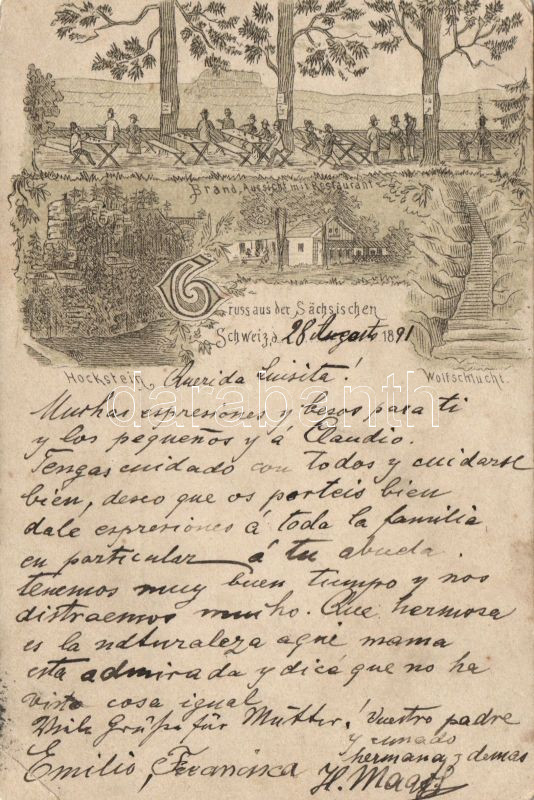 Brand, Aussicht mit Restaurant
Gruss aus der Sächsischen
Schweiz, d. 28 Augosto 1891
Hockstein
Wolfschlucht.
Querida Luisita!
Muchas espresiones y besos para ti
y los pequeños y á Claudio.
Tengas cuidado con todos y cuidarse
bien, deseo que os porteis bien
dale espresiones á toda la familia
en particular á tu abuela.
tenemos muy buen tiempo y nos
distraemos mucho. Que hermosa
es la naturaleza aqui mama
esta admirada y dice que no ha
visto cosa igual
Viele Grüße für Mutter! Vuestro padre
y cunado
hermana y demas
Emilio, Francisca
darabanth